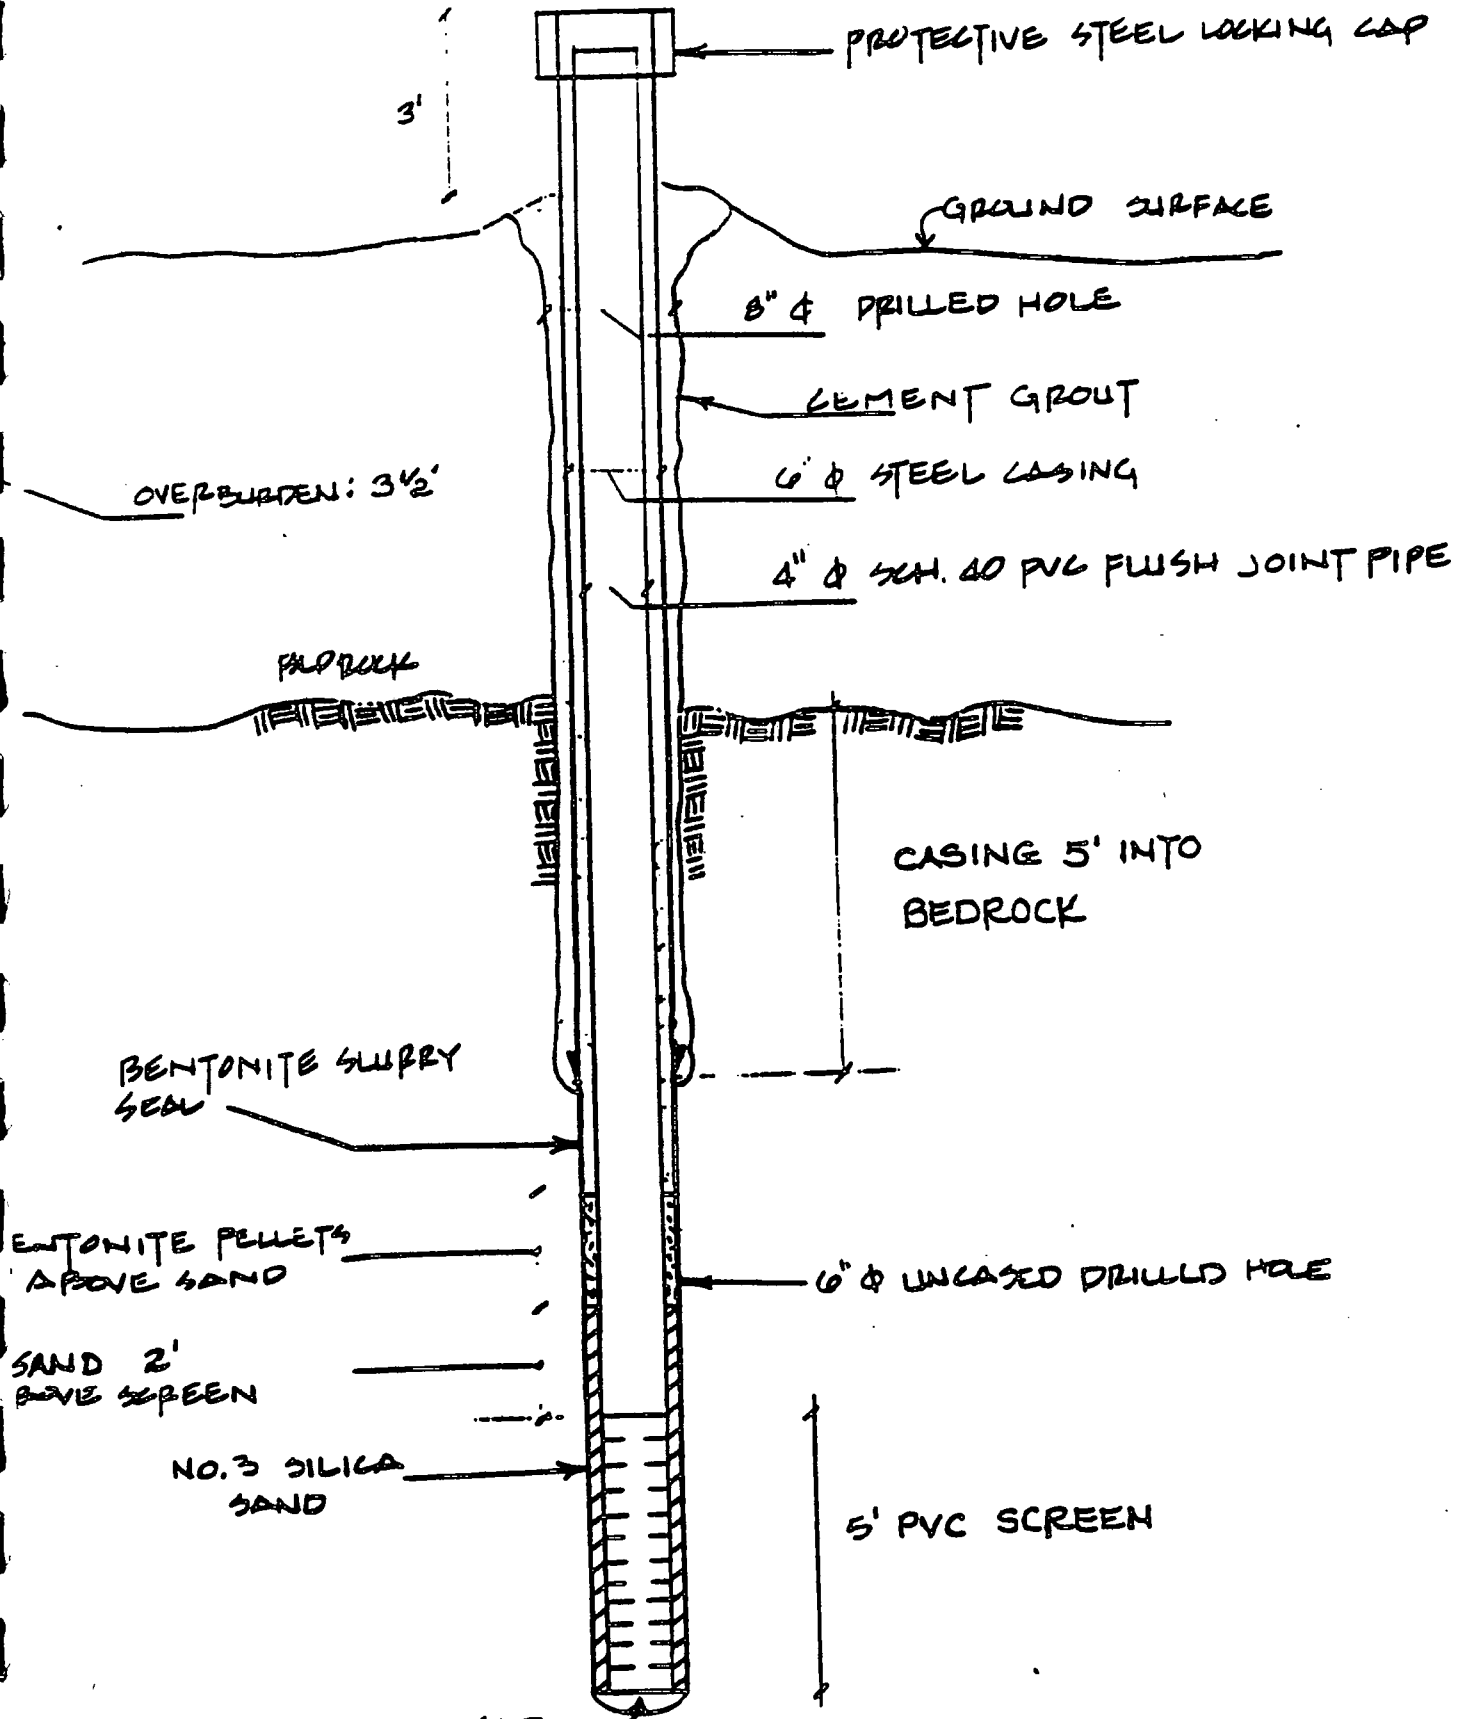 PROTECTIVE STEEL LOCKING CAP
3'
GROUND SURFACE
8" ¢ DRILLED HOLE
CEMENT GROUT
OVERBURDEN: 3 1/2'
6" φ STEEL CASING
4" φ SCH. 40 PVC FLUSH JOINT PIPE
BEDROCK
CASING 5' INTO
BEDROCK
BENTONITE SLURRY
SEAL
ENTONITE PELLETS
ABOVE SAND
6" φ UNCASED DRILLED HOLE
SAND 2'
BOVE SCREEN
NO.3 SILICA
SAND
5' PVC SCREEN